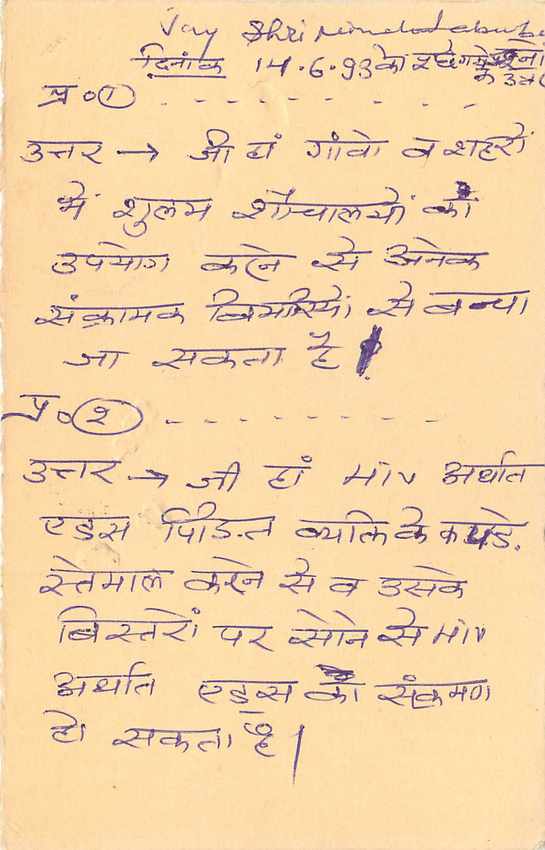 Jay Shri
दिनांक 14.6.93 के रखे गये प्रश्नो
के उत्तर
प्र०①- - - - - - - - - -
उत्तर → जी हां गांवो व शहरों
में शुलभ शौचालयों का
उपयोग करने से अनेक
संक्रामक बिमारियों से बचा
जा सकता है।
प्र०② - - - - - - - - - -
उत्तर → जी हां HIV अर्थात
एडस पिडित व्यक्ति के कपडे.
स्तेमाल करने से व उसके
बिस्तरों पर सोने से HIV
अर्थात एडस का संक्रमण
हो सकता है।